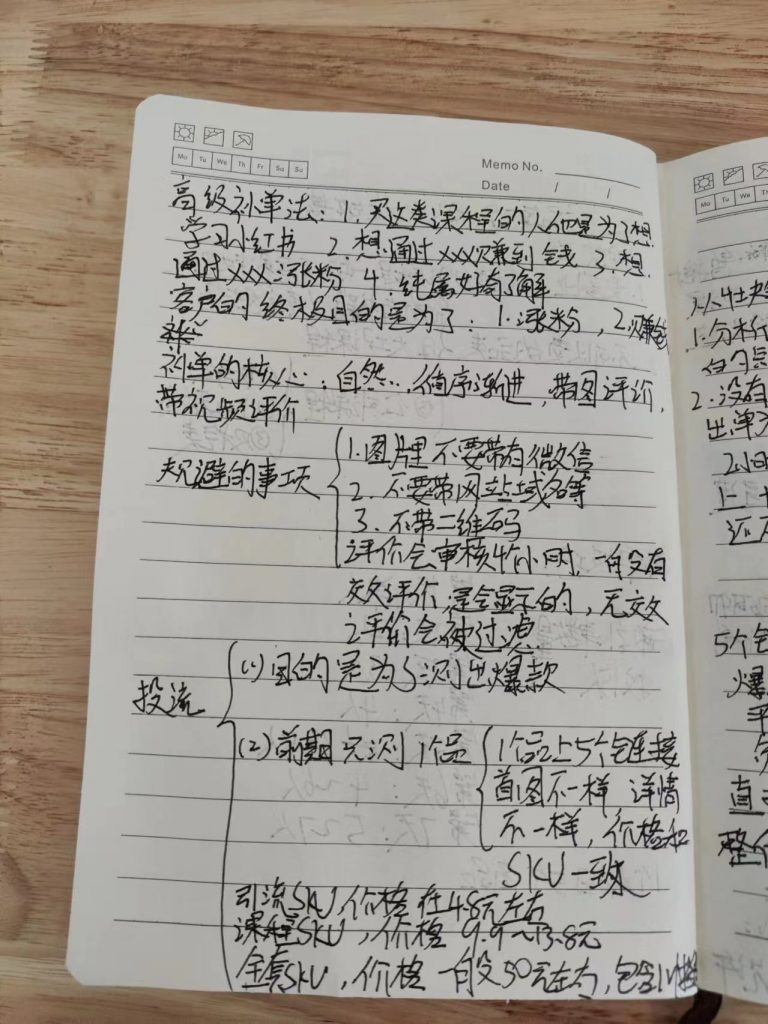 Mo Tu We Th Fr Sa Su
Memo No.
Date / /
高级补单法：1. 买这类课程的人他是为了想
学习小红书 2. 想通过xxx赚到钱 3. 想
通过xxx涨粉 4. 纯属好奇了解
客户的终极目的是为了：1. 涨粉，2. 赚钱
补单的核心：自然..，循序渐进，带图评价，
带视频评价
规避的事项
1. 图片里不要带有微信
2. 不要带网站域名等
3. 不带二维码
评价会审核4个小时，一般有
效评价，是会显示的，无效
评价会被过滤
投流
(1) 目的是为了测出爆款
(2) 前期只测1个品
1个品上5个链接
首图不一样 详情
不一样，价格和
SKU一致
引流SKU，价格在4.8元左右
课程SKU，价格9.9~13.8元
全套SKU，价格一般50元左右，包含
Mo Tu We Th
1. 分析
2. 没有
出单
2小时
5个
爆
整个